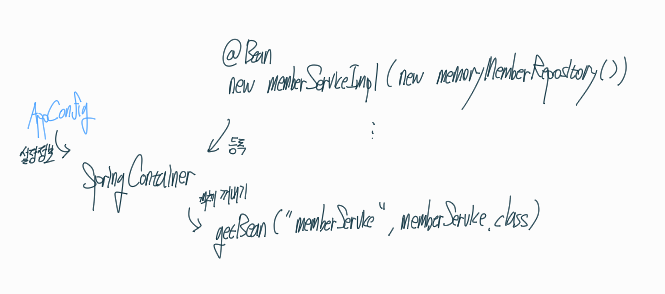 @Bean
new memberServiceImpl (new memoryMemberRepository())
AppConfig
설정정보
등록
Spring Container
꺼내기
getBean ("memberService", memberService.class)